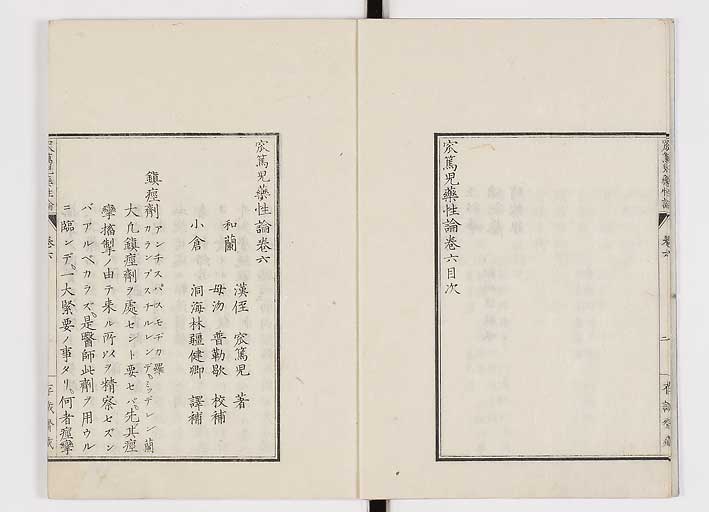 窊篤児藥性論巻六目次
窊篤児藥性論巻六
和蘭 漢侄 窊篤児 著
毋沕 普勒歇 校補
小倉 洞海林疆健卿 譯補
鎮痙劑 アンチスパスモヂカ羅
カランプスチルレンデミッデレン蘭
大凡鎮痙劑ヲ處セント要セバ先其痙
攣搐掣ノ由テ來ル所以ヲ精察セズン
バアルベカラズ是醫師此劑ヲ用ウル
ニ臨ンデ一大緊要ノ事タリ何者痙攣
窊篤児藥性論
巻六